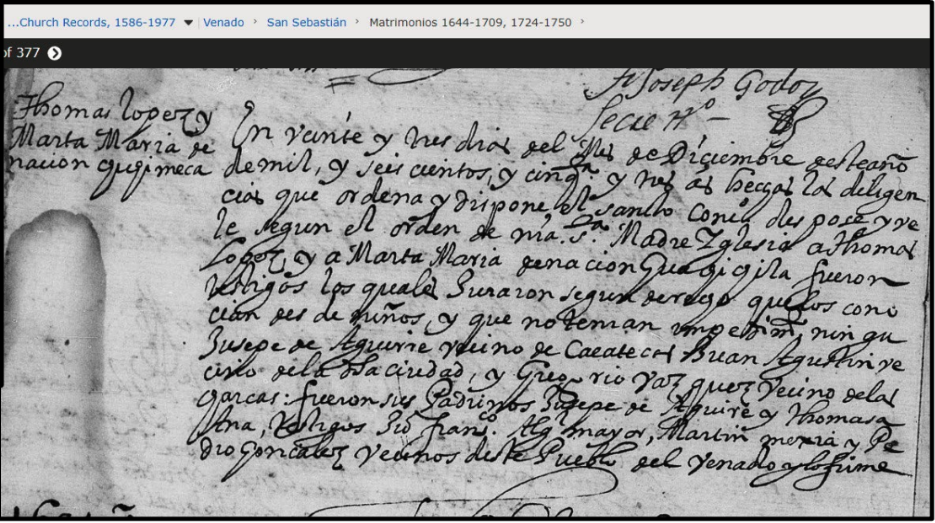 ...Church Records, 1586-1977 ▼ | Venado › San Sebastián › Matrimonios 1644-1709, 1724-1750 ›
of 377
fr Joseph Godoy
Secre rio
Thomas lopez y
Marta Maria de
nacion gugimeca
En veinte y tres dias del Mes de Diciembre desteaño
demil, y seis cientos, y cinqta y tres as heccas las diligen
cias que ordena y dispone el santo Conci des pose y ve
le segun el orden de nra Sa Madre Yglesia a Thomas
Lopez, y a Marta Maria denacion fueron
testigos los quales Juraron segun derego quelos cono
cian des de niños, y que notenian impedim, nin gu
Jusepe de Aguirre vecino de Juan Agustin ve
cino dela ciudad, y Greo rio Vaz quez Vecino delas
garcas: fueron sus Padrinos Jusepe de Aguire y Thomasa
Ana, Testigos franco mayor, Martin mexia y Pe
dro gonzalez Vecinos deste Pueblo del Venado y lofirme